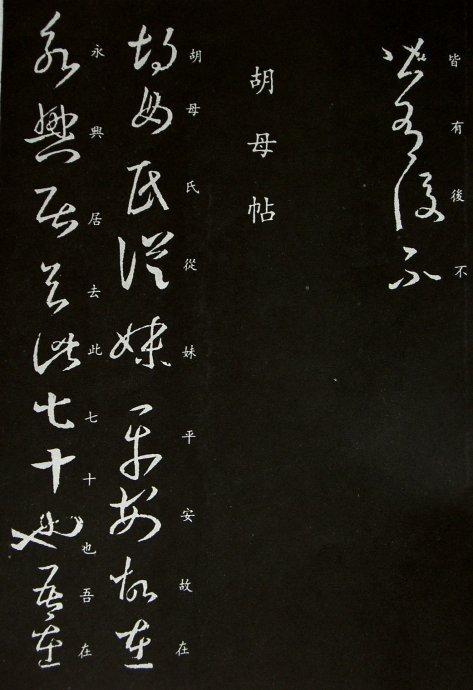 皆有後不
胡母帖
胡母氏從妹平安故在
永興居去此七十也吾在